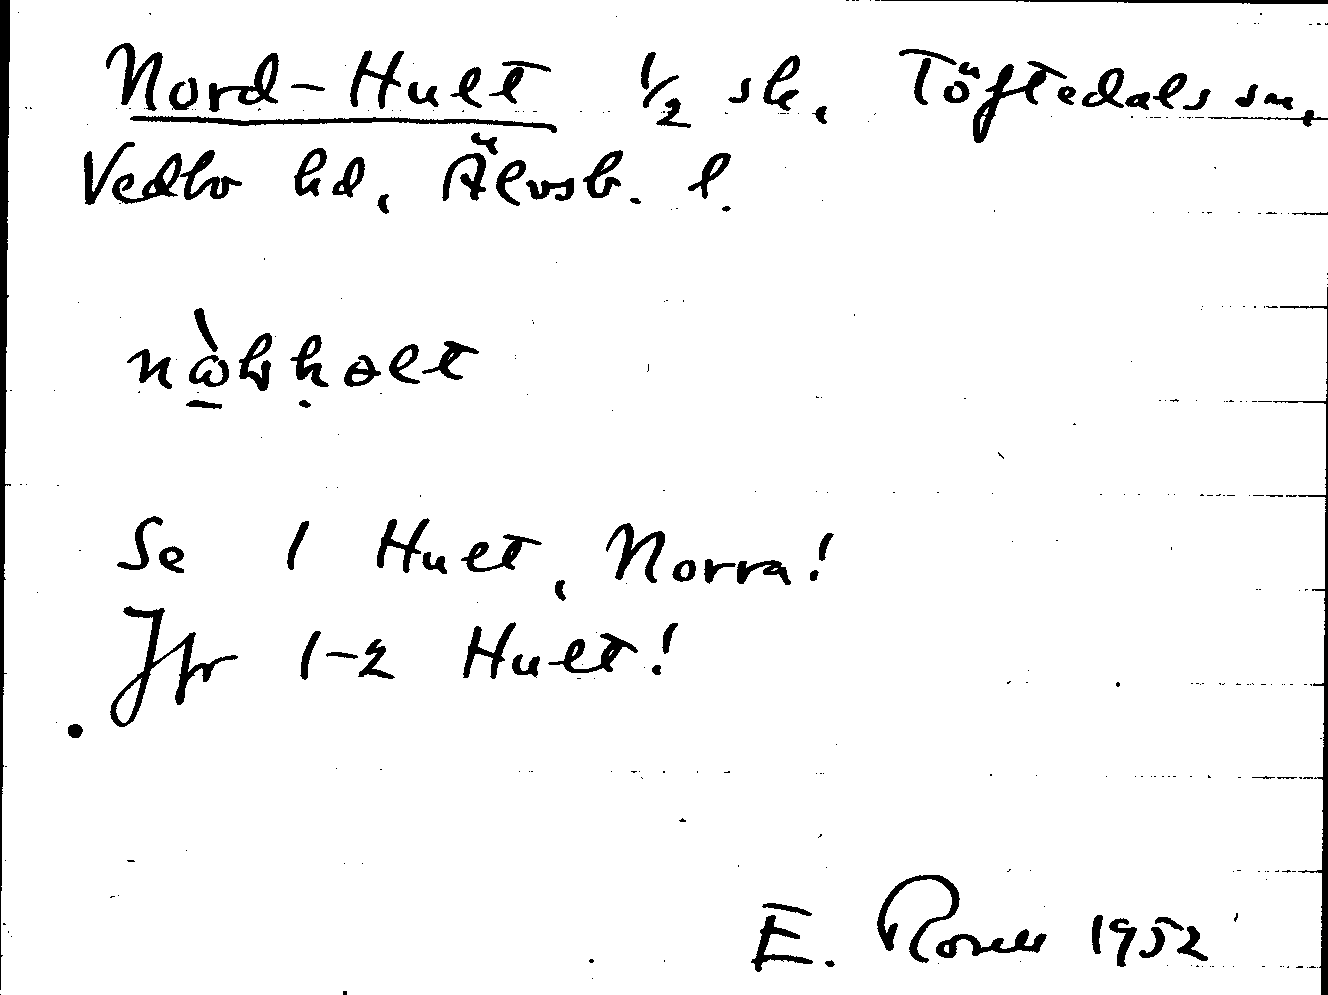 Nord-Hult 1/2 sk, Töftedals sn,
Vedbo hd, Älvsb. l.
Se 1 Hult, Norra!
Jfr 1-2 Hult!
E. Rosell 1952